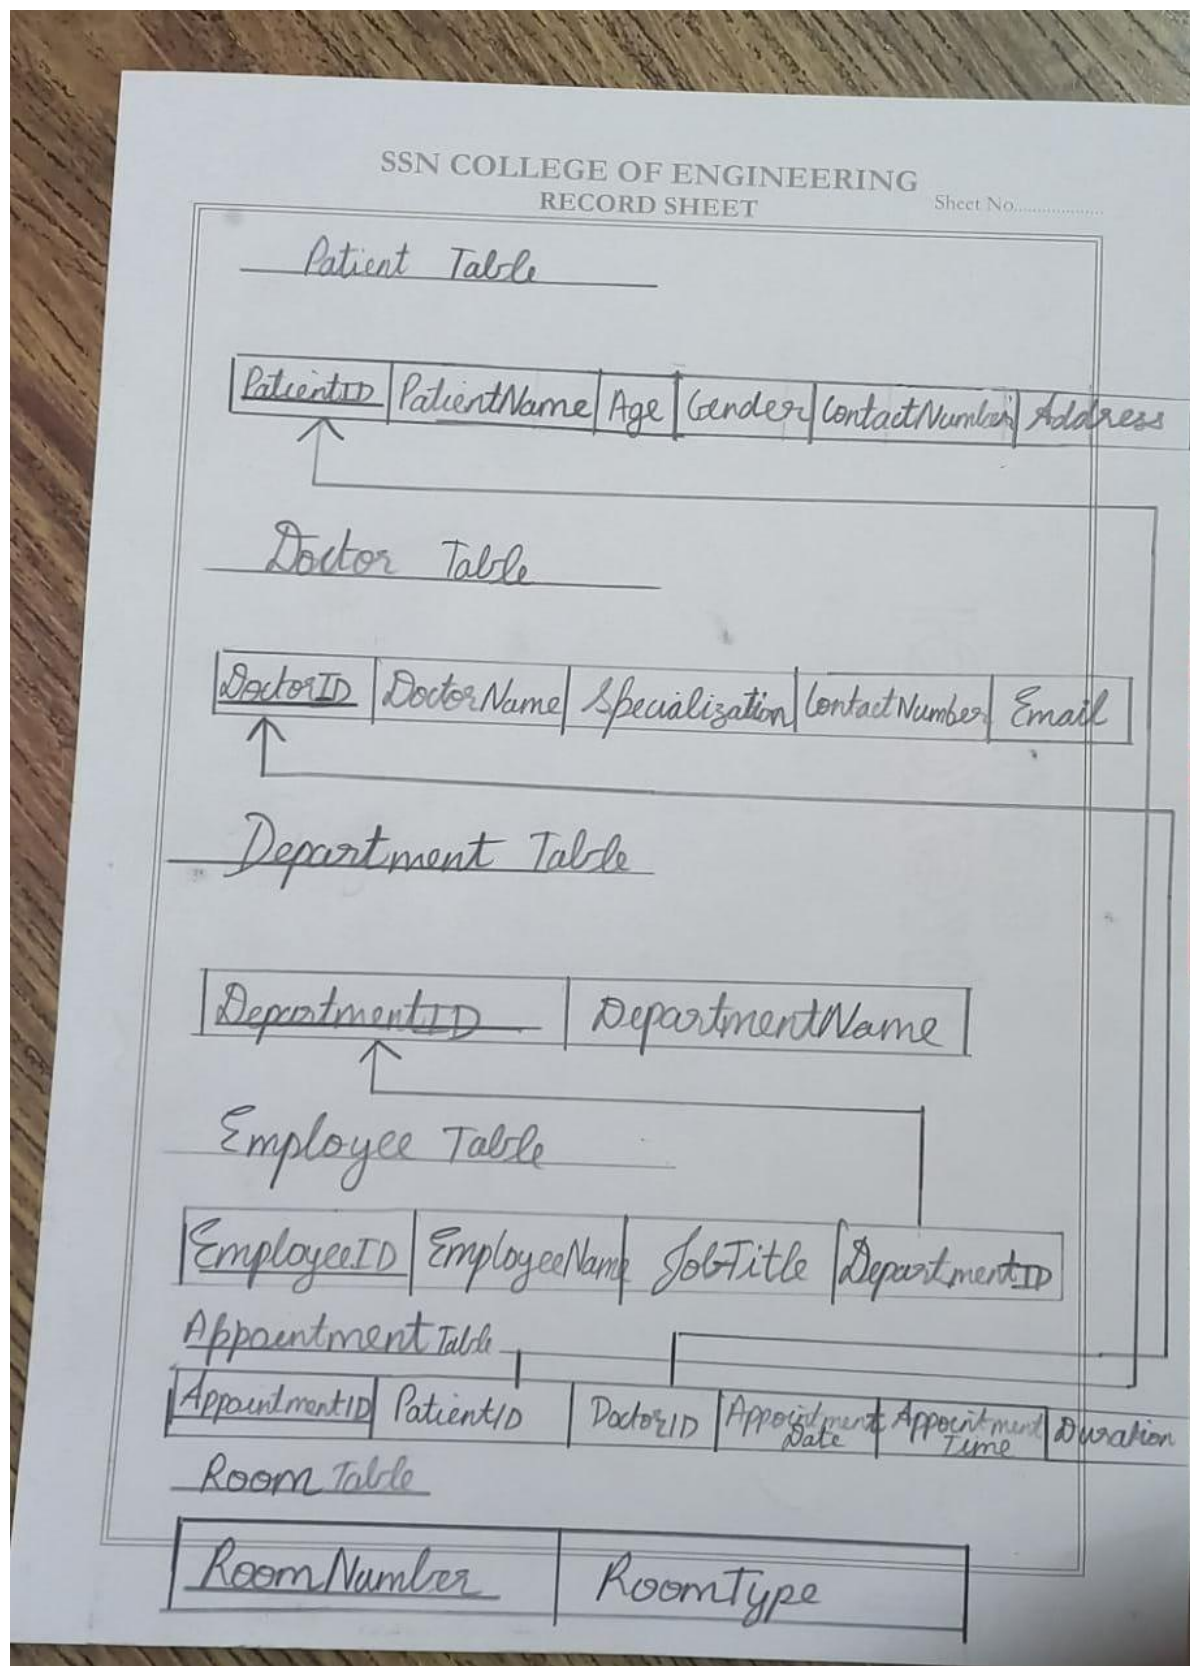 SSN COLLEGE OF ENGINEERING
RECORD SHEET
Sheet No...................
Patient Table
PatientID PatientName Age Gender ContactNumber Address
Doctor Table
DoctorID DoctorName Specialization ContactNumber Email
Department Table
DepartmentID DepartmentName
Employee Table
EmployeeID EmployeeName JobTitle DepartmentID
Appointment Table
AppointmentID PatientID DoctorID Appointment Date Appointment Time Duration
Room Table
RoomNumber RoomType